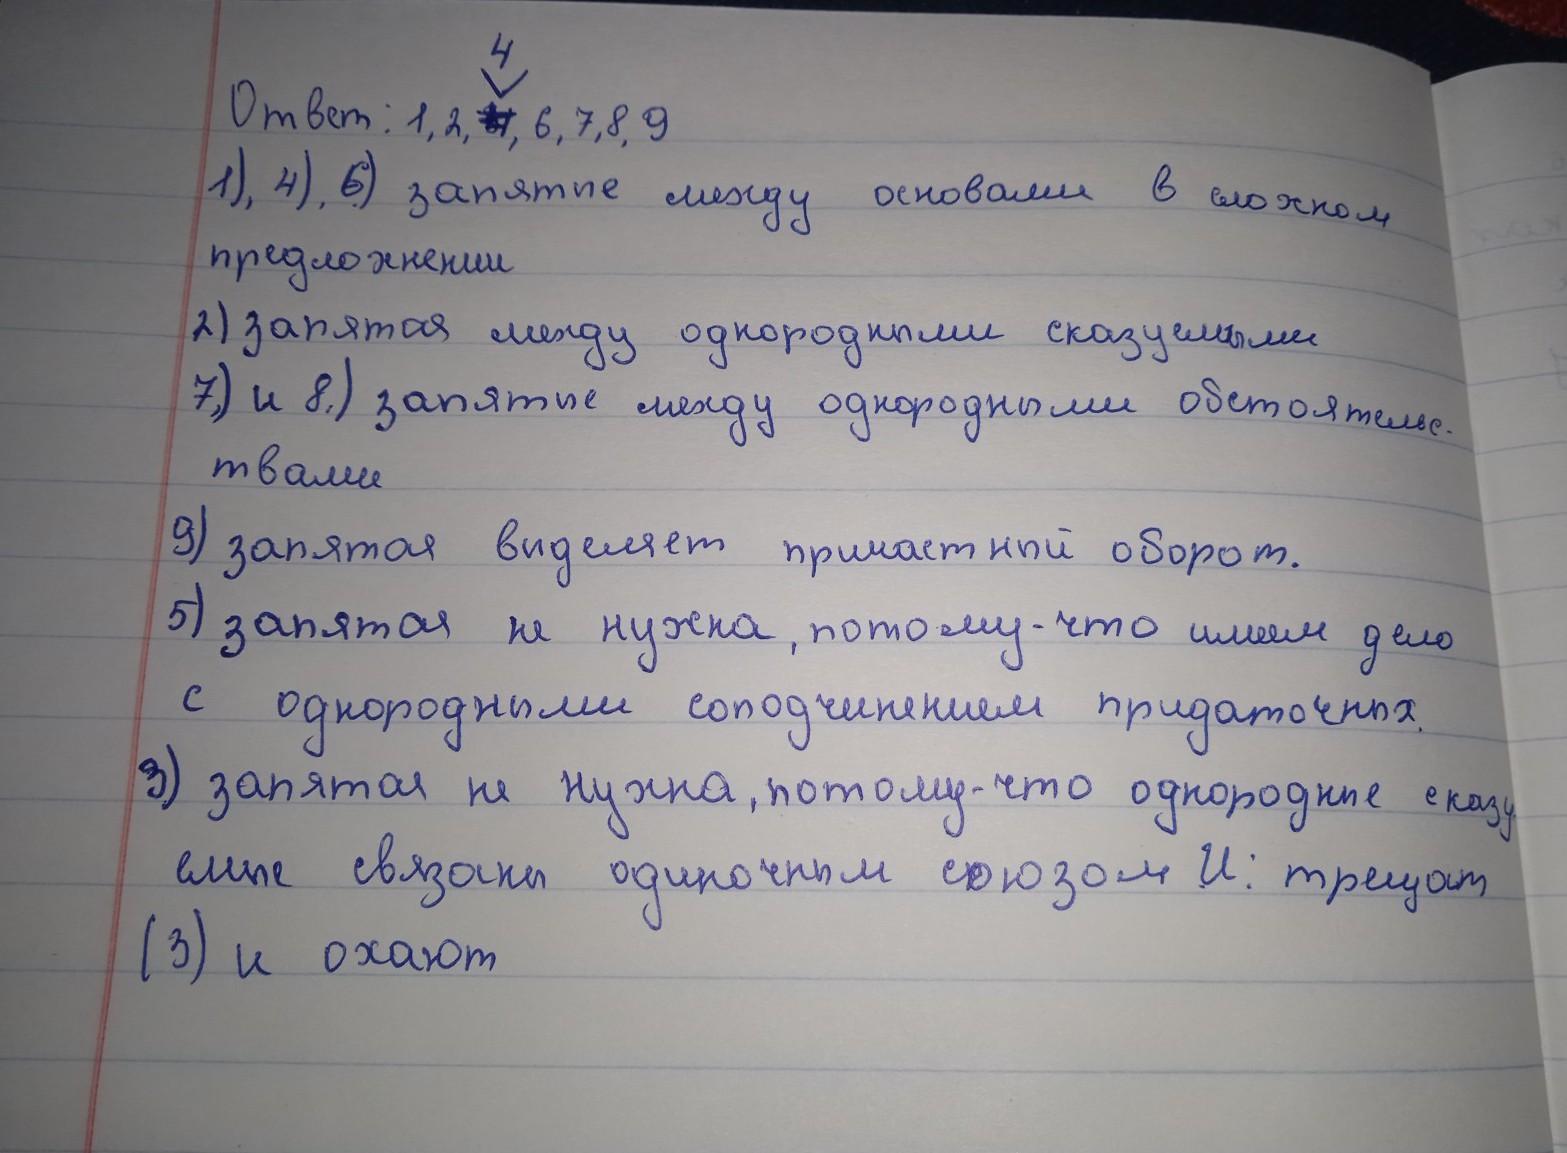 4
Ответ: 1, 2, 4, 6, 7, 8, 9
1), 4), 6) запятые между основами в сложном
предложнении
2) запятая между однородными сказуемыми
7,) и 8.) запятые между однородными обстоятельс-
твами
9) запятая виделяет причастный оборот.
5) запятая не нужна, потому-что имеем дело
с однородными соподчинением придаточных.
3) запятая не нужна, потому-что однородные сказу
емые связаны одиночным союзом И: трещат
(3) и охают